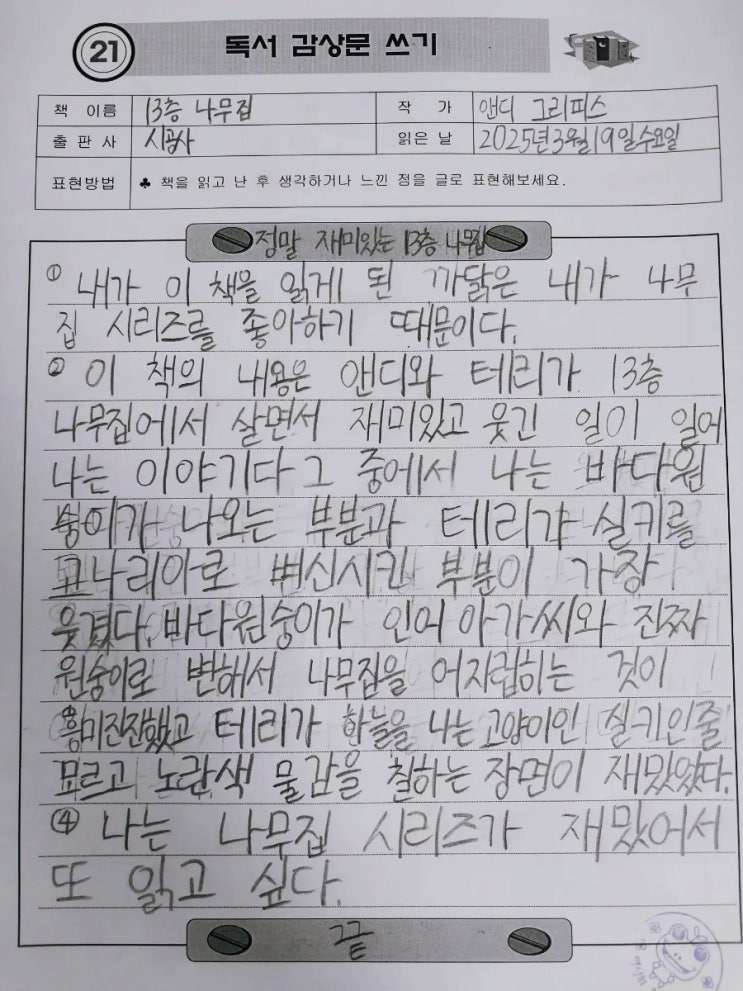 21
독서 감상문 쓰기
책 이름 13층 나무집 작 가 앤디 그리피스
출 판 사 시공사 읽은 날 2025년 3월 19일 수요일
표현방법 ♣ 책을 읽고 난 후 생각하거나 느낀 점을 글로 표현해보세요.
정말 재미있는 13층 나무집
① 내가 이 책을 읽게 된 까닭은 내가 나무
집 시리즈를 좋아하기 때문이다.
② 이 책의 내용은 앤디와 테리가 13층
나무집에서 살면서 재미있고 웃긴 일이 일어
나는 이야기다 그 중에서 나는 바다원
숭이가 나오는 부분과 테리가 실키를
코나리아로 변신시킨 부분이 가장
웃겼다. 바다원숭이가 인어 아가씨와 진짜
원숭이로 변해서 나무집을 어지럽히는 것이
흥미진진했고 테리가 하늘을 나는 고양이인 실키인줄
모르고 노란색 물감을 칠하는 장면이 재밌었다.
④ 나는 나무집 시리즈가 재밌어서
또 읽고 싶다.
끝